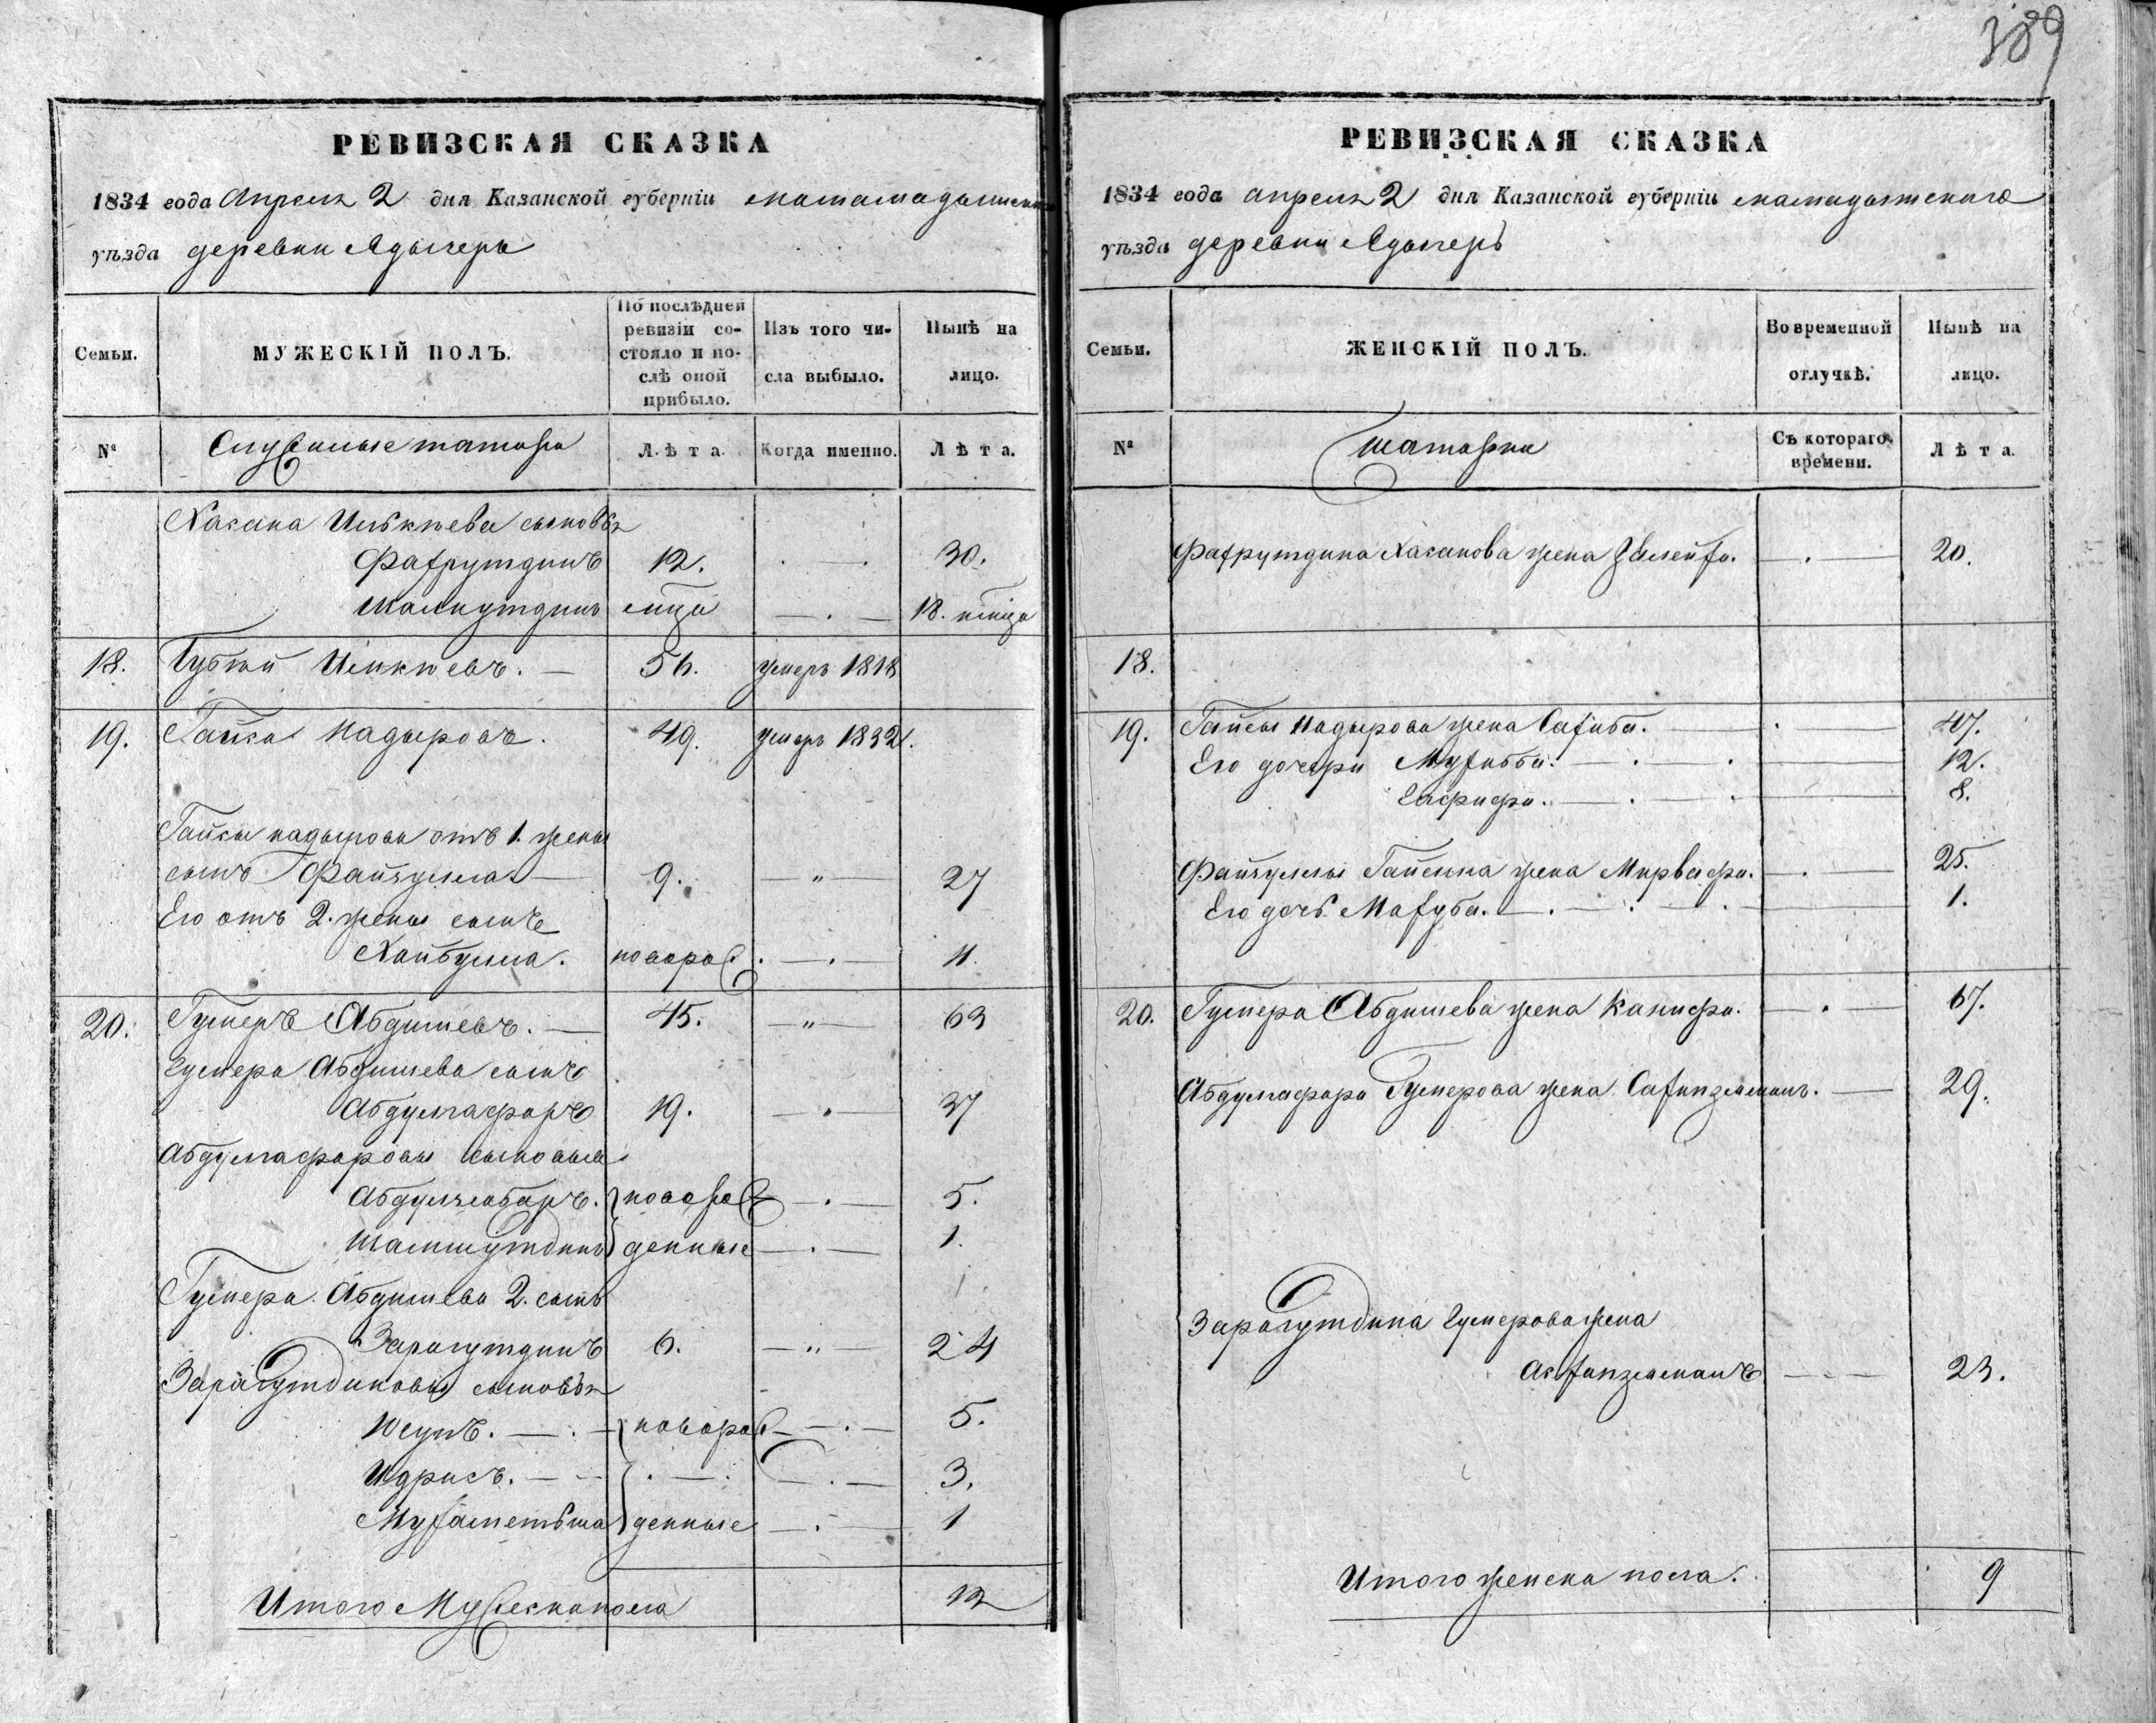 389
РЕВИЗСКАЯ СКАЗКА
1834 года Апреля 2 дня Казанской губерніи
уѣзда деревни Адыгеръ
Семьи.
МУЖЕСКІЙ ПОЛЪ.
По послѣдней ревизіи со-
стояло и по-
слѣ оной
прибыло.
Изъ того чи-
сла выбыло.
Ныне на
лицо.
№ Служилые татара Лѣта. Когда именно. Лѣта.
Хасана сыновья
Фахрутдинъ 12. 30.
18.
18. Ишкѣевъ. 56. умеръ 1818
19. Гайса Надыровъ. 49. умеръ 1832.
Гайсы Надырова отъ 1. жены
сынъ Файзулла 9. 27
Его отъ 2. жены сынъ
Хайбулла. новорож. 11.
20. Гумеръ Абдишевъ. 45. 63
Гумера Абдишева сынъ
Абдулгафаръ 19. 37
Абдулгафаровы сыновья
Абдулзябаръ. новорож 5.
Шамшутдинъ денные 1.
Гумера Абдишева 2. сынъ
Зарагутдинъ 6. 24
Зарагутдиновы сыновья
Юсупъ. новорож 5.
Идрисъ. 3.
Мухаметьша денные 1
Итого Мужеска пола 12
РЕВИЗСКАЯ СКАЗКА
1834 года апреля 2 дня Казанской губерніи мамадышскаго
уѣзда деревни Адыгеръ
Семьи.
ЖЕНСКІЙ ПОЛЪ.
Во временной
отлучкѣ.
Нынѣ на
лицо.
№ татарки Съ котораго
времени. Лѣта.
Фахрутдина Хасанова жена 20.
18.
19. Гайсы Надырова жена Сахиба. 47.
Его дочери Мухибби. 12.
8.
Файзуллы Гайсина жена Мирвафа. 25.
Его дочь Махуба. 1.
20. Гумера Абдишева женаХанифа. 67.
Абдулгафара Гумерова жена Сахипземалъ. 29.
Зарагутдина Гумерова жена
23.
Итого женска пола. 9